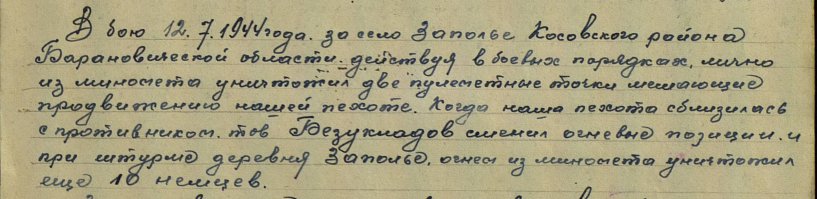 В бою 12.7.1944 года. за село Заполье Косовского района
Барановической области. действуя в боевых порядках, лично
из миномета уничтожил две пулеметные точки мешающие
продвижению нашей пехоте. Когда наша пехота сблизилась
с противником. тов Безукладов сменил огневые позиции. и
при штурме деревня Заполье, огнем из миномета уничтожил
еще 10 немцев.